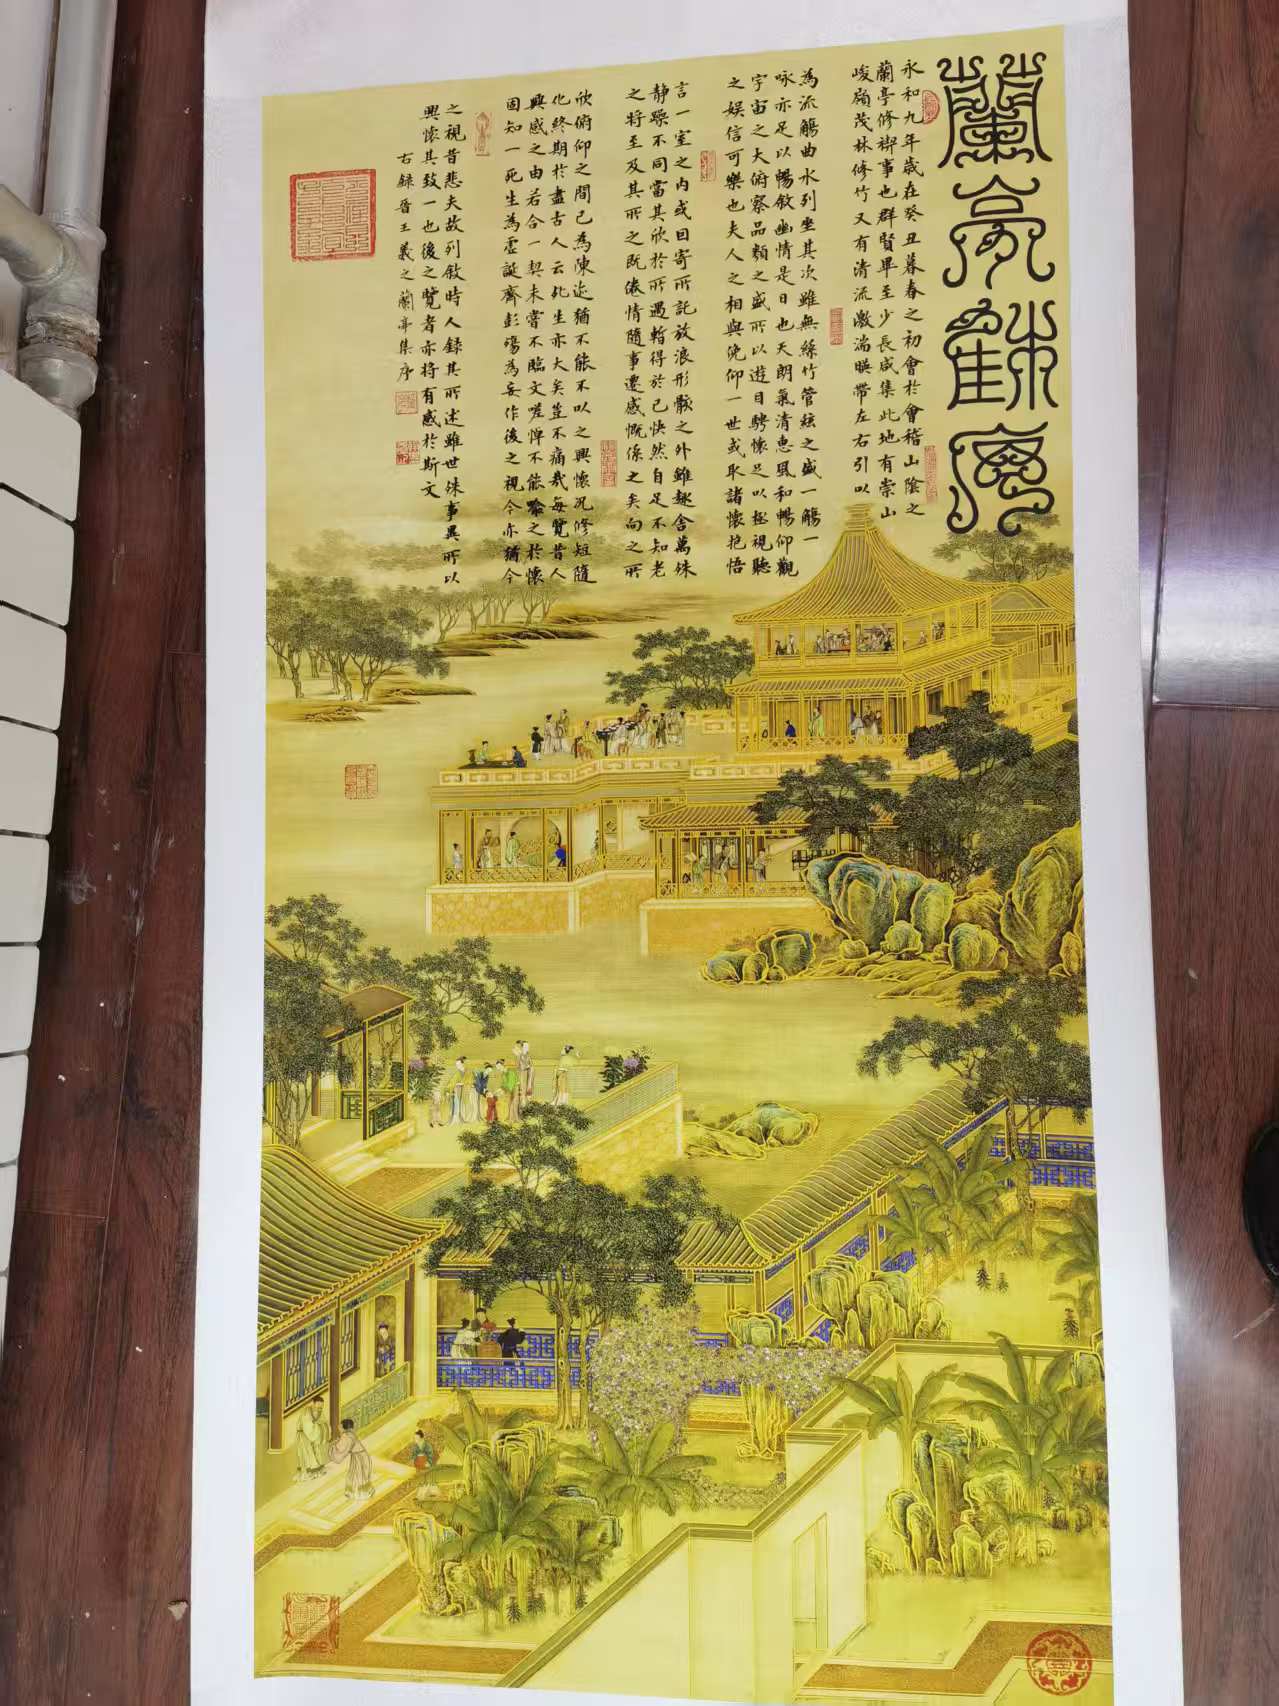 蘭亭
永和九年歲在癸丑暮春之初會於會稽山陰之
蘭亭修禊事也群賢畢至少長咸集此地有崇山
峻嶺茂林修竹又有清流激湍暎帶左右引以
為流觴曲水列坐其次雖無絲竹管絃之盛一觴一
咏亦足以暢敘幽情是日也天朗氣清惠風和暢仰觀
宇宙之大俯察品類之盛所以遊目騁懷足以極視聽
之娛信可樂也夫人之相與俛仰一世或取諸懷抱悟
言一室之內或因寄所託放浪形骸之外雖趣舍萬殊
靜躁不同當其欣於所遇暫得於己快然自足不知老
之將至及其所之既倦情隨事遷感慨係之矣向之所
欣俯仰之間已為陳迹猶不能不以之興懷況修短隨
化終期於盡古人云死生亦大矣豈不痛哉每覽昔人
興感之由若合一契未嘗不臨文嗟悼不能喻之於懷
固知一死生為虛誕齊彭殤為妄作後之視今亦猶今
之視昔悲夫故列敘時人錄其所述雖世殊事異所以
興懷其致一也後之覽者亦將有感於斯文
右錄晉王羲之蘭亭集序